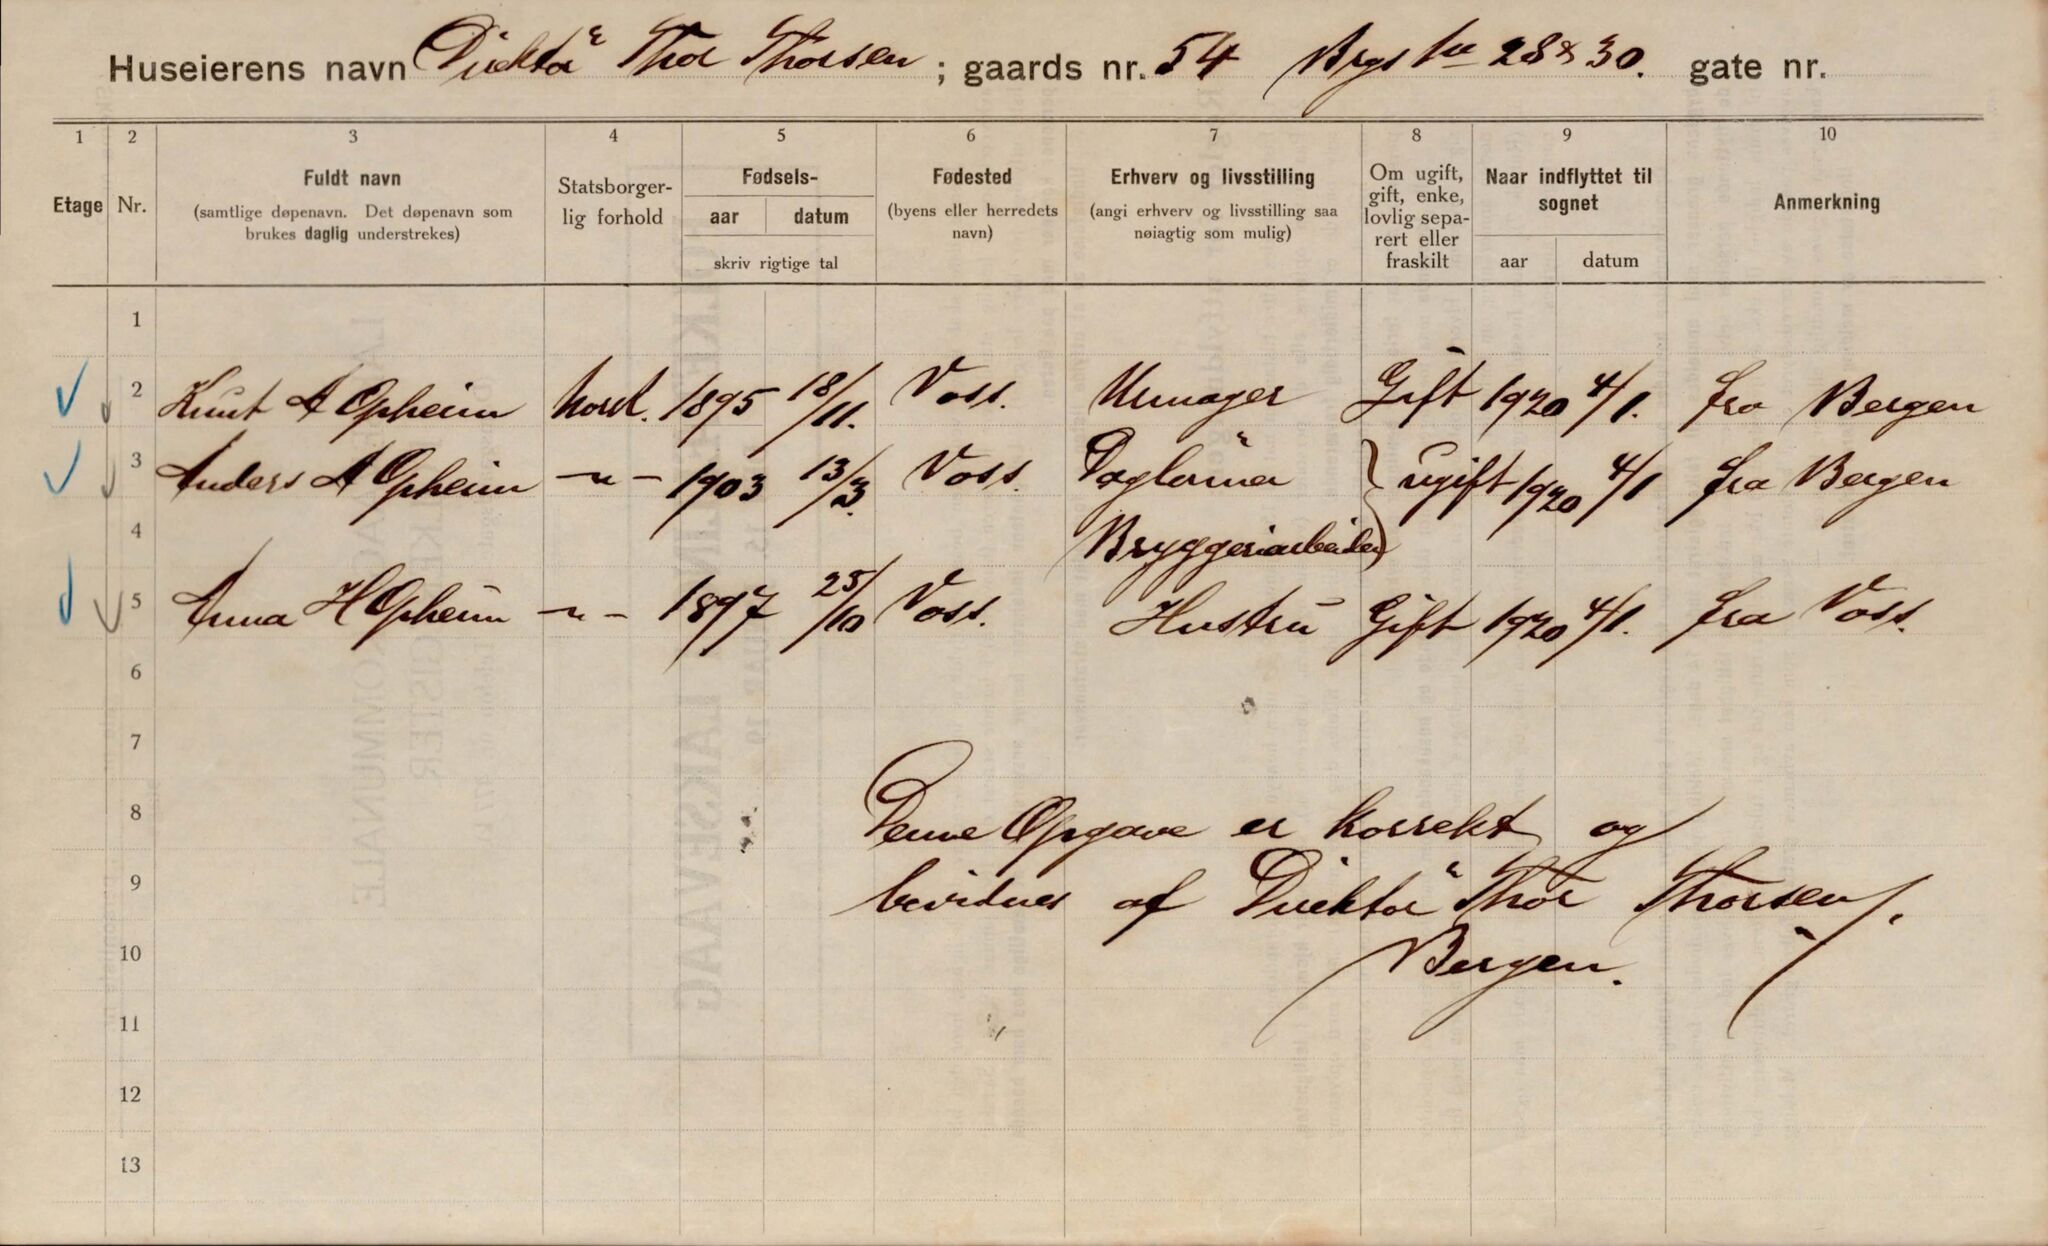 Huseierens navn Direktør Thor Thorsen ; gaards nr. 54 28 & 30. gate nr.
1 2 3 4 5 6 7 8 9 10
Etage Nr. Fuldt navn (samtlige døpenavn. Det døpenavn som brukes daglig understrekes) Statsborger-lig forhold Fødsels- aar datum skriv rigtige tal Fødested (byens eller herredets navn) Erhverv og livsstilling (angi erhverv og livsstilling saa nøiagtig som mulig) Om ugift, gift, enke, lovlig sepa-rert eller fraskilt Naar indflyttet til sognet aar datum Anmerkning
1
2 Knut A Opheim Norsk. 1895 18/11. Voss. Urmager Gift 1920 4/1. fra Bergen
3 Anders A Opheim -"- 1903 13/3. Voss. Dagløner } ugift 1920 4/1 fra Bergen
4 Bryggeriarbeider
5 Anna H Opheim -"- 1897 25/10 Voss. Hustru Gift 1920 4/1. fra Voss.
6
7
8 Denne Opgave er korrekt og
9 bevidnes af Direktør Thor Thorsen
10 Bergen.
11
12
13